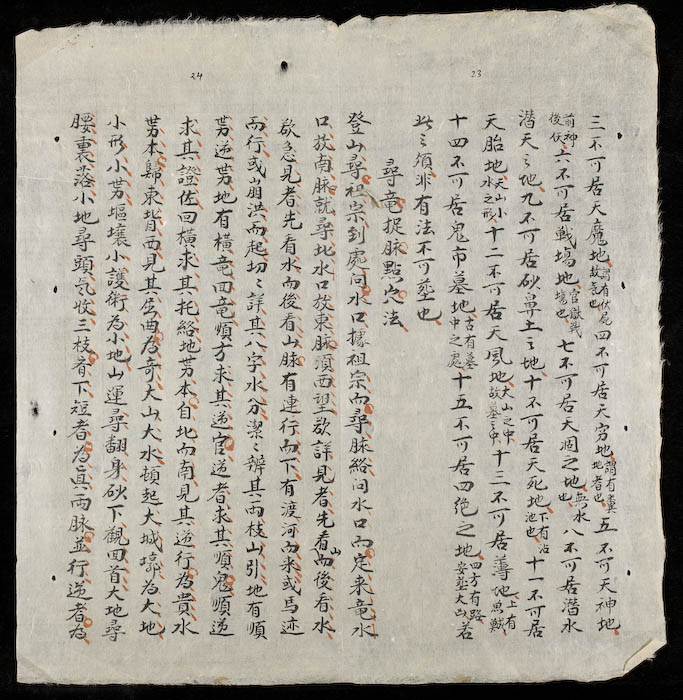 24
23
三不可居天魔地謂有伏屍故气也四不可居天穷地謂有糞地者也五不可天神地
前神後伏六不可居戰塲地官獄戰塲也七不可居天涸之地無水也八不可居潛水
潜天之地九不可居砂鼻土之地十不可居天死地下有沾池也十一不可居
天胎地天山小水之形十二不可居天風地大山之中故墓之中十三不可居薄地上有魚賊
十四不可居鬼市墓地古有墓中之處十五不可居四绝之地四方有路安塟大凶若
此之須非有法不可塟也
尋竜捉脉點穴法
登山尋祖宗到處问水口攄祖宗而尋脉絡问水口而定来竜水
口放南脉就尋北水口放東脉須西望欲詳見者先看山而後看水
欲急見者先看水而後看山脉有連行而下有渡河而来或馬迹
而行或崩洪而起切之詳其八字水分潔之辨其兩枝山引地有順
势逆势地有横竜回竜順方求其逆官逆者求其順鬼順逆
求其證佐回横求其托絡地势本自北而南見其逆行為貴水
势本歸東皆西見其屈曲為奇大山大水頓起大城壕為大地
小形小势塸壤小護術為小地山運尋翻身砂下觀回首大地尋
腰裏落小地尋頭気收三枝齊下短者為真兩脉並行逆者為